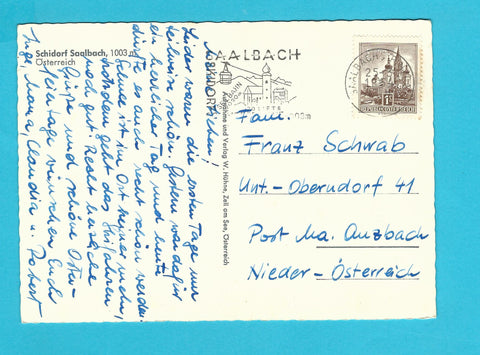 Schidorf Saalbach, 1003 m
Österreich
Leider waren die ersten Tage nur
teilweise schön. Gestern war dafür
ein herrlicher Tag und heute
dürfte es auch recht schön werden.
Schnee ist im Ort keiner mehr,
trotzdem geht das Skifahren
noch gut. Recht herzliche
Grüße und schöne Oster-
feiertage wünschen Euch
Inge, Mama, Claudia u. Robert
Aufnahme und Verlag W. Höhne, Zell am See, Österreich
SAALBACH
SAALBACH
REPUBLIK ÖSTERREICH
Fam.
Franz Schwab
Unt.-Oberndorf 41
Post Ma. Anzbach
Nieder-Österreich